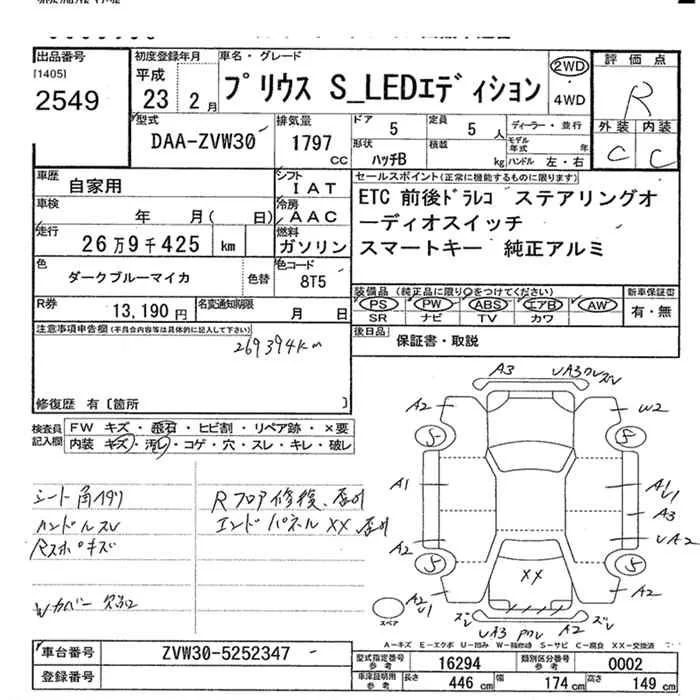 出品番号
[1405]
2549
初度登録年月
平成
23年 2月
車名・グレード
プリウス S_LEDエディション
2WD
・
4WD
評価点
R
外装 内装
C C
型式
DAA-ZVW30
排気量
1797
CC
ドア 5
定員 5人
形状 ハッチB
積載 kg
ディーラー・並行
モデル年式 年
ハンドル 左・右
車歴
自家用
シフト
IAT
セールスポイント(正常に機能するものに限ります)
ETC 前後ドラレコ ステアリングオ
ーディオスイッチ
スマートキー 純正アルミ
車検
年 月( 日)
冷房
AAC
走行
26万9千425 km
燃料
ガソリン
色
ダークブルーマイカ
色替
色コード
8T5
装備品(純正品に限り○をつけてください)
PS PW ABS エアB AW
SR ナビ TV カワ
新車保証書
有・無
R券
13,190円
名変通知期限
月 日
後日品
保証書・取説
注意事項申告欄(不具合内容等は具体的に記入して下さい)
269394km
修復歴 有〔箇所 〕
検査員
記入欄
FW キズ・飛石・ヒビ割・リペア跡・×要
内装 キズ・汚レ・コゲ・穴・スレ・キレ・破レ
シート角スリ
ハンドルスレ
Rフロア修復、歪み
エンドパネルXX、歪み
Wカバー欠品
A3
A2
W2
S
S
A1
A3
A2
UA2
S
S
XX
A2
スペア
UA3
A2
A-キズ E-エクボ U-凹み W-補修跡 S-サビ C-腐食 XX-交換済
車台番号
ZVW30-5252347
登録番号
型式指定番号
参考
16294
類別区分番号
参考
0002
車検証明用
参考
長さ 446 cm
幅 174 cm
高さ 149 cm